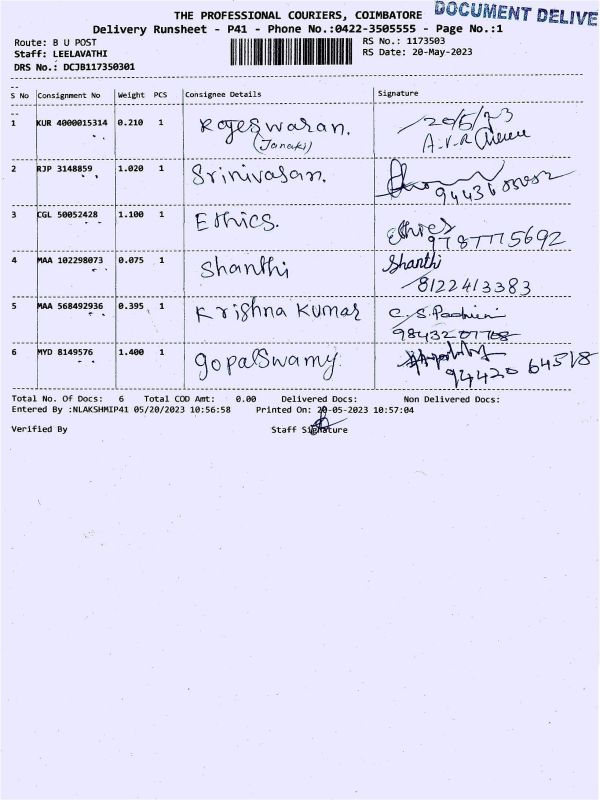 THE PROFESSIONAL COURIERS, COIMBATORE
DOCUMENT DELIVE
Delivery Runsheet - P41 - Phone No.:0422-3505555 - Page No.:1
Route: B U POST
RS No.: 1173503
Staff: LEELAVATHI
RS Date: 20-May-2023
DRS No.: DCJB117350301
S No Consignment No Weight PCS Consignee Details Signature
1 KUR 4000015314 0.210 1 Rajeswaran. 20/5/23
(Janaki) A.V.R
2 RJP 3148859 1.020 1 Srinivasan.
3 CGL 50052428 1.100 1 Ethics. Ethics
9787775692
4 MAA 102298073 0.075 1 Shanthi Shanthi
8122413383
5 MAA 568492936 0.395 1 Krishna Kumar C.S.
6 MYD 8149576 1.400 1 gopalSwamy.
94420 64518
Total No. Of Docs: 6 Total COD Amt: 0.00 Delivered Docs: Non Delivered Docs:
Entered By :NLAKSHMIP41 05/20/2023 10:56:58 Printed On: 20-05-2023 10:57:04
Verified By Staff Signature